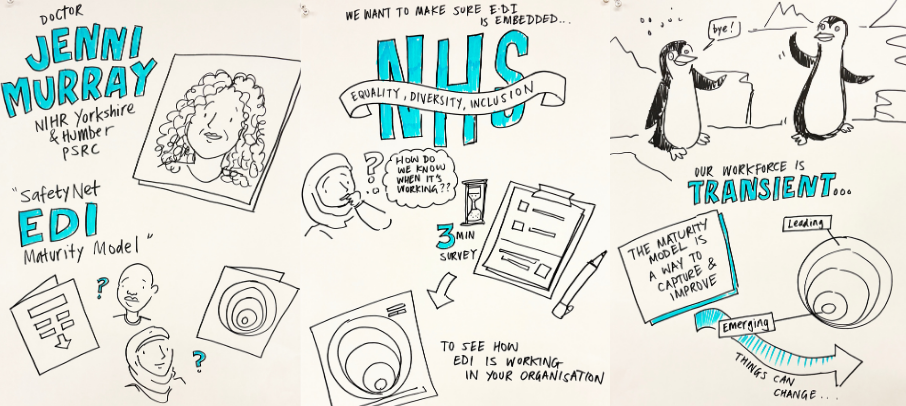 DOCTOR
JENNI
MURRAY
NIHR Yorkshire
& Humber
PSRC
"SafetyNet
EDI
Maturity Model"
?
?
WE WANT TO MAKE SURE E·D·I
IS EMBEDDED...
NHS
EQUALITY, DIVERSITY, INCLUSION
?
HOW DO
WE KNOW
WHEN IT'S
WORKING??
3 MIN
SURVEY
TO SEE HOW
EDI IS WORKING
IN YOUR ORGANISATION
bye!
OUR WORKFORCE IS
TRANSIENT...
THE MATURITY
MODEL IS
A WAY TO
CAPTURE &
IMPROVE
Leading
Emerging
THINGS CAN
CHANGE...